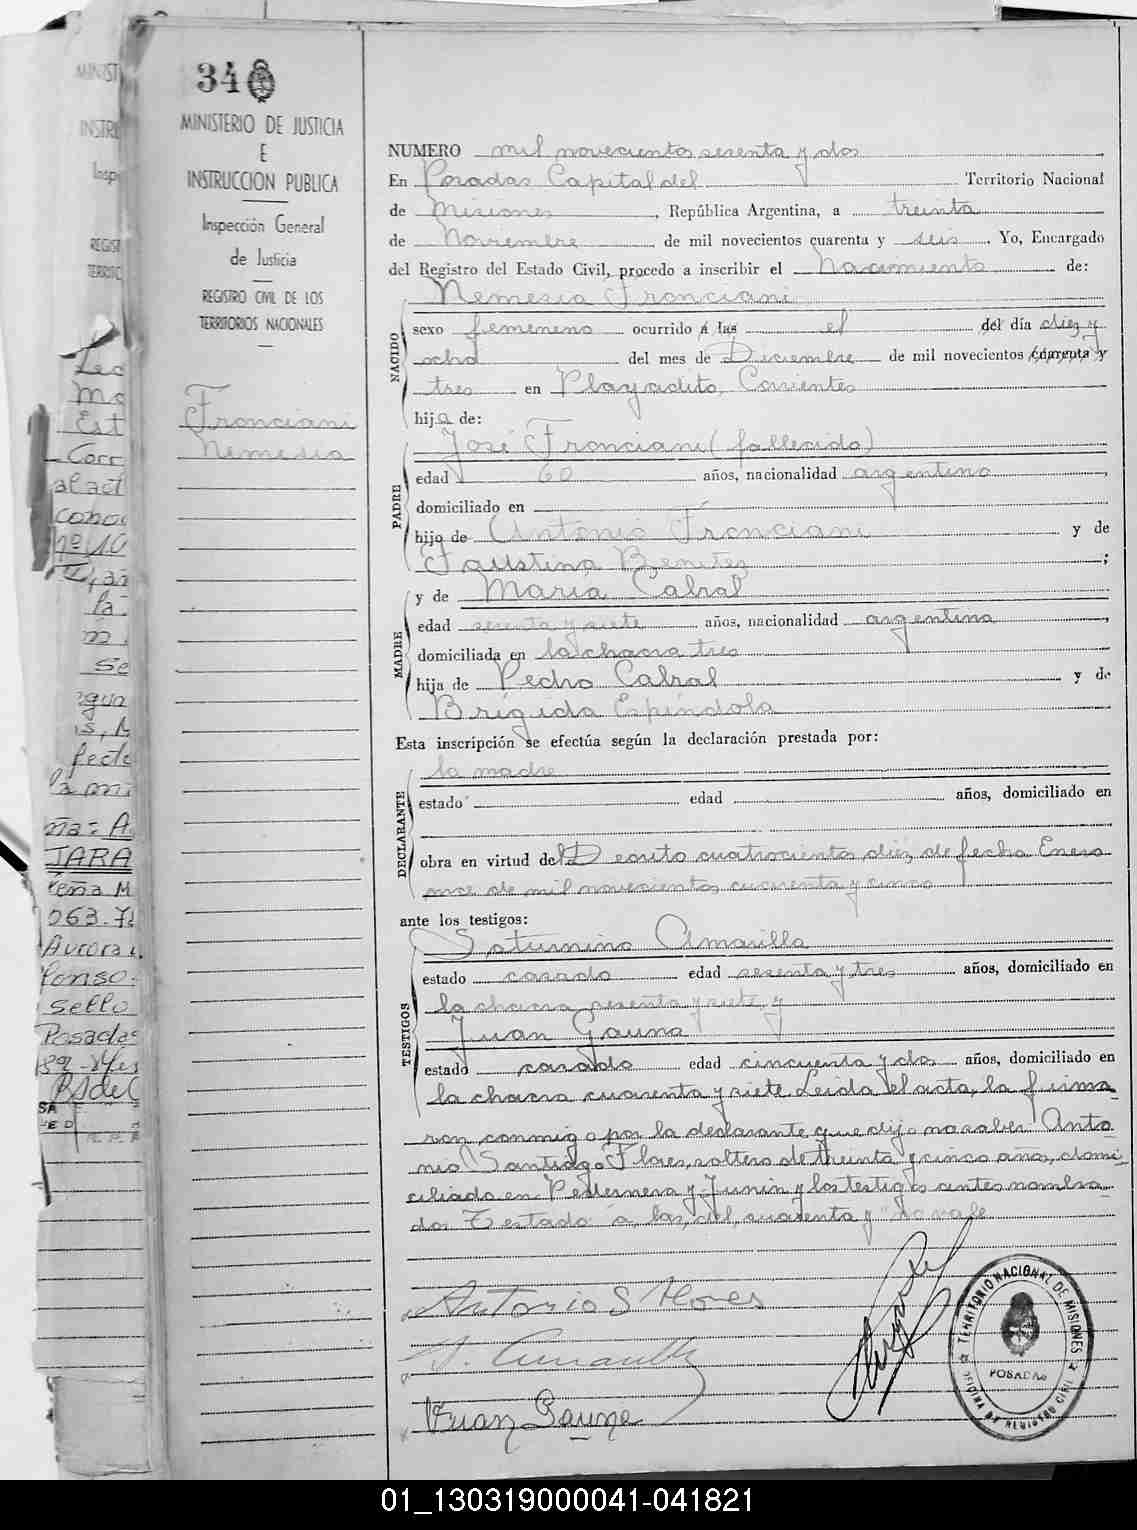 34
MINISTERIO DE JUSTICIA
E
INSTRUCCION PUBLICA
Inspección General
de Justicia
REGISTRO CIVIL DE LOS
TERRITORIOS NACIONALES
Fronciani
Nemesia
NUMERO mil novecientos sesenta y dos
En Posadas Capital del Territorio Nacional
de Misiones, República Argentina, a treinta
de Noviembre de mil novecientos cuarenta y seis. Yo, Encargado
del Registro del Estado Civil, procedo a inscribir el Nacimiento de:
NACIDO
Nemesia Fronciani
sexo femenino ocurrido á las el del día diez y
ocho del mes de Diciembre de mil novecientos cuarenta y
tres en Playadito, Corrientes
hija de:
PADRE
José Fronciani (fallecido)
edad 60 años, nacionalidad argentino
domiciliado en
hijo de Antonio Fronciani y de
Faustina Benitez;
MADRE
y de María Cabral
edad sesenta y siete años, nacionalidad argentina,
domiciliada en la chacra tres
hija de Pedro Cabral y de
Brígida Espíndola
Esta inscripción se efectúa según la declaración prestada por:
DECLARANTE
la madre
estado edad años, domiciliado en
obra en virtud del Decreto cuatrocientos diez de fecha Enero
once de mil novecientos cuarenta y cinco
ante los testigos:
TESTIGOS
Saturnino Amarilla
estado casado edad sesenta y tres años, domiciliado en
la chacra sesenta y siete y
Juan Gauna
estado casado edad cincuenta y dos años, domiciliado en
la chacra cuarenta y siete Leida el acta, la firma
ron conmigo por la declarante que dijo no saber Anto
nio Santiago Flores, soltero de treinta y cinco años, domi
ciliado en Pedernera y Junin y los testigos antes nombra
dos Testado a, las, del, cuarenta y no vale
Antonio S Flores
S. Amarilla
Juan Gauna
TERRITORIO NACIONAL DE MISIONES
POSADAS
OFICINA DE REGISTRO CIVIL
01_130319000041-041821